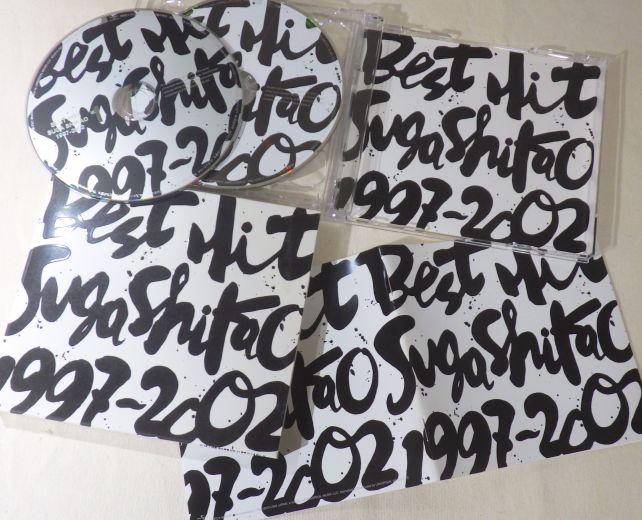 Best Hit
Suga Shikao
1997-2002
Best Hit
Suga Shikao
1997-2002
Best Hit
Suga Shikao
1997-2002
Best Hit
Suga Shikao
1997-2002
Best Hit
Suga Shikao
1997-2002